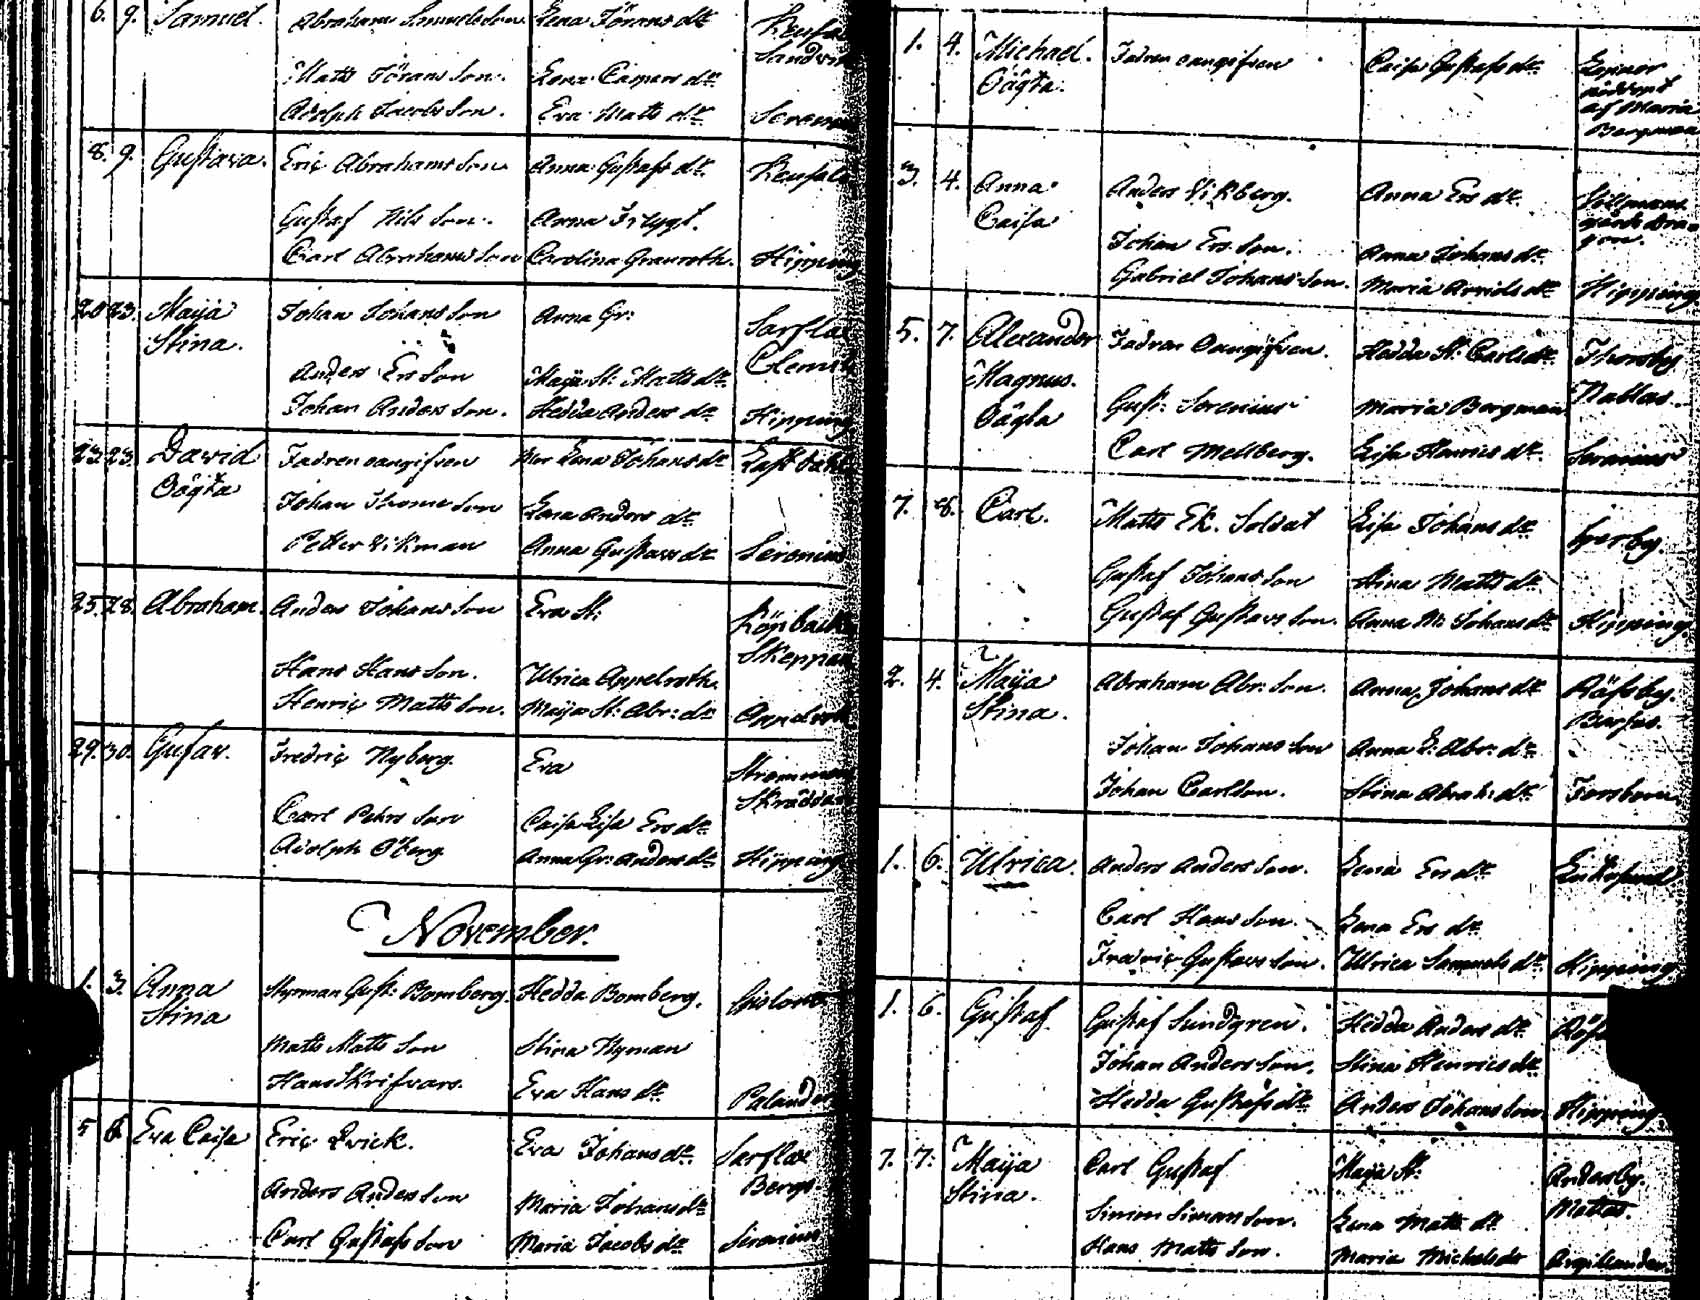 6. 9. Samuel. Abraham Samuelsson Lena Jörans dr
Matts Jöransson. Lena Caspers dr
Adolph Jacobsson. Eva Matts dr
8. 9. Gustava. Eric Abrahamsson Anna Gustafs dr
Gustaf Nilsson. Anna Frygt.
Carl Abrahamsson Carolina Granroth. Hipping
20 23. Maija Johan Johansson Anna Gr:
Stina. Sarflax
Anders Ersson Maija St: Matts dr
Johan Andersson. Hedda Anders dr Hipping
23. 23. David Fadren oangifven Mor Lena Johans dr
Oägta Johan Thomeson Lena Anders dr
Petter Vikman Anna Gustavs dr Serenius
25. 28. Abraham. Anders Johansson Eva St:
Köpbacka
Hans Hansson. Ulrica Appelroth.
Henric Mattsson. Maija St: Abr: dr
29. 30. Gustav. Fredric Nyberg. Eva
Skräddar
Carl Pehrsson Caisa Lisa Ers dr
Adolph Öberg Anna Gr: Anders dr Hipping
November.
1. 3. Anna Styrman Gust: Bomberg. Hedda Bomberg.
Stina
Matts Mattsson Stina Nyman
Hans Skrifvars. Eva Hans dr Palander
5 6. Eva Caisa Eric Qvick. Eva Johans dr Sarflax
Bergs.
Anders Andersson Maria Johans dr
Carl Gustafsson Maria Jacobs dr Serenius
1. 4. Michael. Fadren oangifven Caisa Gustafs dr
Oägta. af Maria
Bergman
3. 4. Anna Anders Vikberg. Anna Ers dr
Caisa
Johan Ersson. Anna Johans dr
Gabriel Johansson. Maria Arvids dr Hipping
5. 7. Alexander Fadren Oangifven. Hedda St: Carls dr Thorsby
Magnus. Nablas
Oägta Gust: Serenius Maria Bergman
Carl Mellberg. Lisa Henrics dr Serenius
7. 8. Carl. Matts Ek. Soldat Lisa Johans dr
Gustaf Johansson Stina Matts dr
Gustaf Gustavsson. Anna M: Johans dr Hipping.
2. 4. Maija Abraham Abr:son. Anna Johans dr
Stina.
Johan Johansson Anna L: Abr: dr
Johan Carlsson. Stina Abrah: dr Forsbom
1. 6. Ulrica. Anders Andersson. Lena Ers dr
Carl Hansson. Lena Ers dr
Fredric Gustavsson. Ulrica Samuels dr Hipping
1. 6. Gustaf Gustaf Sundgren. Hedda Anders dr
Johan Andersson. Stina Henrics dr
Hedda Gustafs dr Anders Johansson Hipping
7. 7. Maija Carl Gustaf Maija St: Andersby.
Stina. Mattas.
Simon Simonsson. Lena Matts dr
Hans Mattsson. Maria Michels dr Argillander